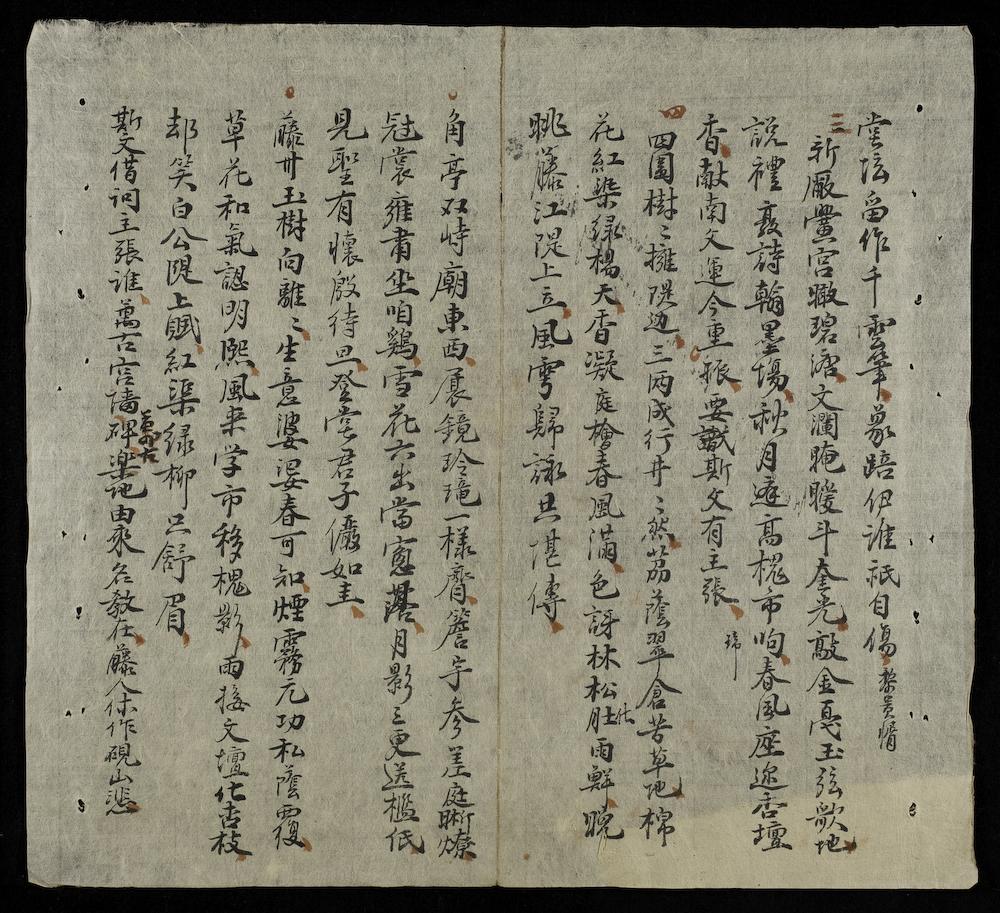 堂坛畱作千雲筆羕踣伊谁祇自傷 黎貴惰
三
新厰黌宫瞰碧溏文瀾晻暖斗奎光敲金戛玉弦歌地
説禮敦詩翰墨塲秋月遲高槐市响春風座迩杏壇
香献南文運今重振要識斯文有主张
四
四圍樹〻擁隄边三两成行井〻然茘蔭翠倉苦草地棉
花紅染绿楊天香凝庭檜春風滿色訝林松肚雨鮮曉
眺藤江隄上立風雩歸詠共湛傳
角亭双峙廟東西展鏡玲瓏一樣齊簷宇参差庭晰燎
冠裳雍肃坐咱鷄雪花六出當窻落月影三更送檻低
見聖有懷殷待旦登堂君子儼如圭
藤卅玉樹向離〻生意婆娑春可知煙霧元功私蔭覆
草花和氣認明熙風来学市移槐影雨接文壇化杏枝
却笑白公隄上賦紅渠緑柳只舒眉
斯文借词主張谁萬古宫墻碑
萬古
楽地由來名教在藤人休作硯山悲